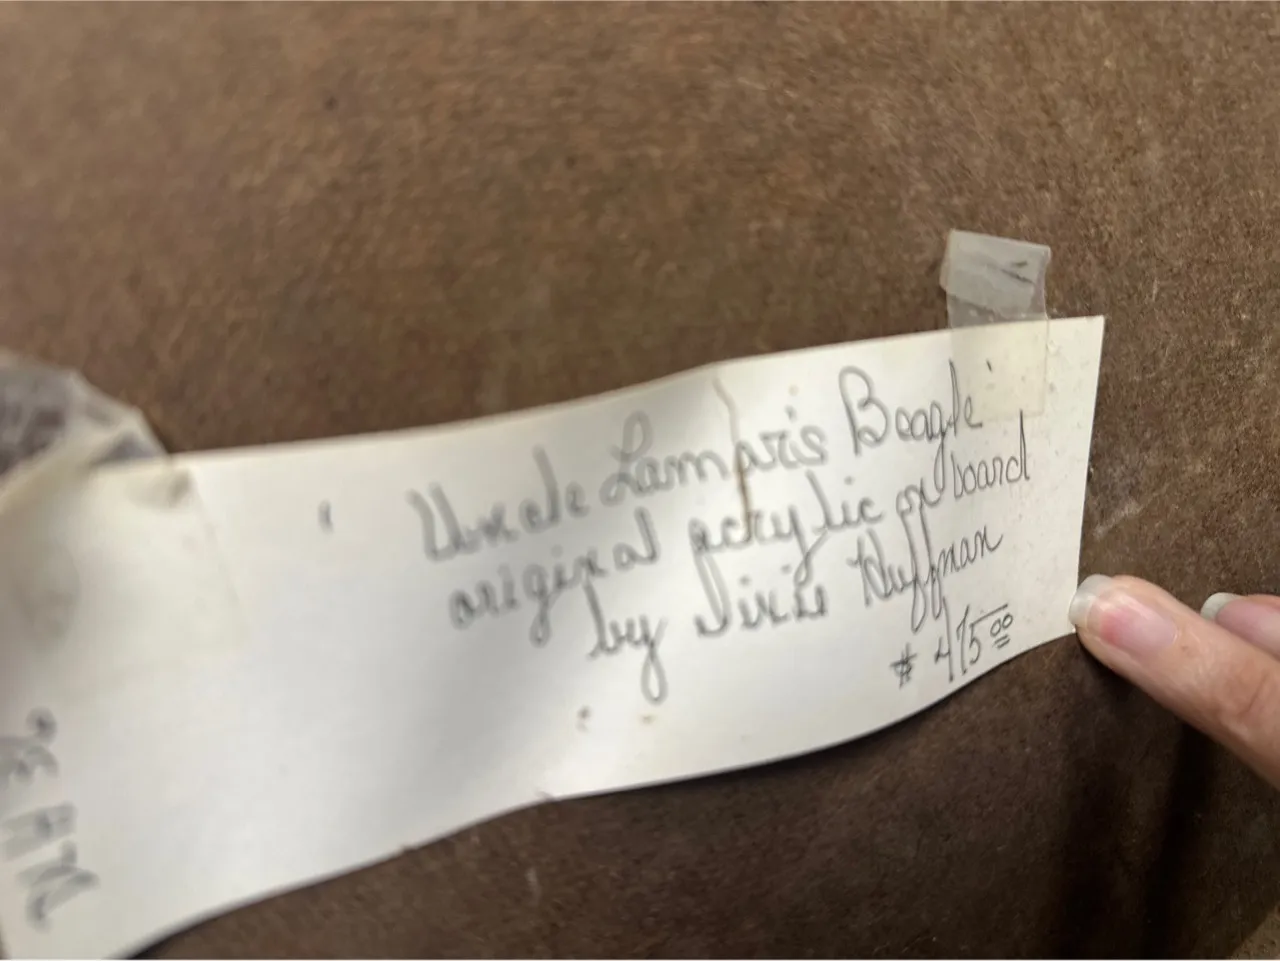 Uncle Lamar's Beagle
original acrylic on board
by Dixie Huffman
# 475 00